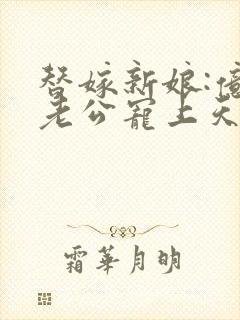 替嫁新娘:億
老公寵上天
霜華月明